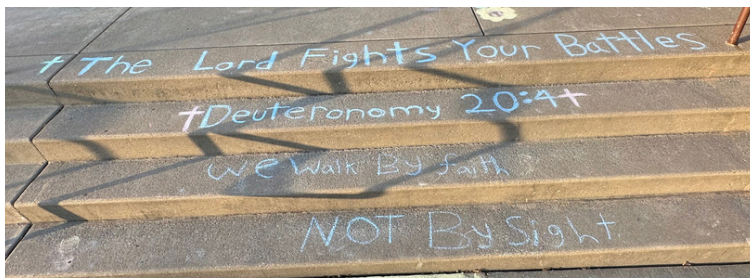 † The Lord Fights Your Battles
†Deuteronomy 20:4†
We Walk By faith
NOT By Sight